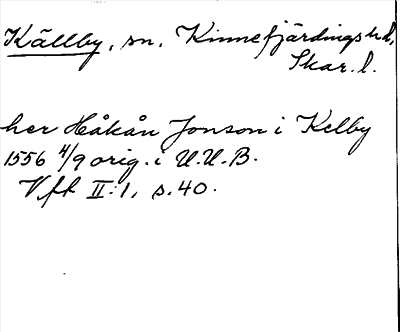 Källby, sn. Kinnefjärdings hd.,
Skar. l.
her Håkån Jonson i Kelby
1556 4/9 orig. i U.U.B.
Vft II:1, s. 40.